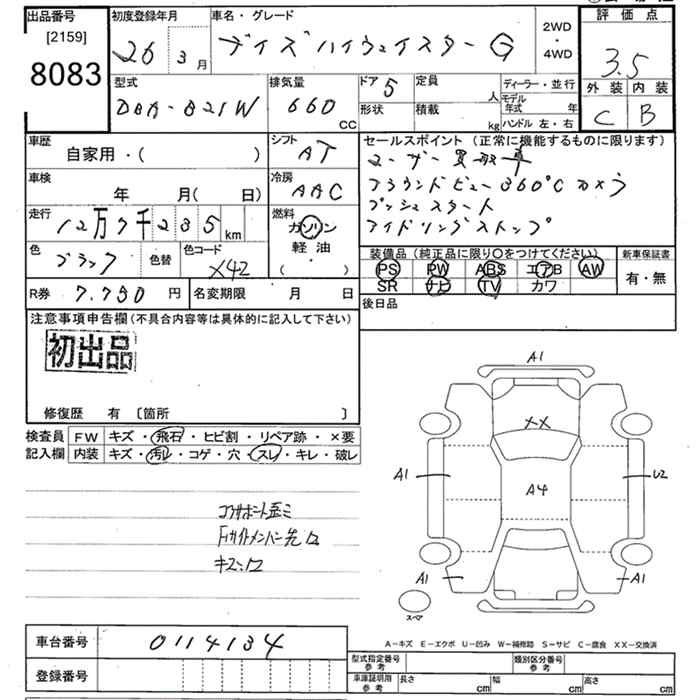 出品番号 初度登録年月 車名・グレード 評価点
[2159] 26 3月 デイズハイウェイスター G 2WD・4WD 3.5
8083
型式 排気量 ドア 5 定員 人 ディーラー・並行 外装 内装
DBA-B21W 660cc 形状 積載 kg モデル年式 年 C B
ハンドル 左・右
車歴 シフト セールスポイント (正常に機能するものに限ります)
自家用・( ) AT ユーザー買取車
車検 冷房 アラウンドビュー360°Cカメラ
年 月(日) AAC プッシュスタート
走行 燃料 アイドリングストップ
12万7千235km ガソリン
軽油
・( )
色 ブラック 色替 色コード X42
装備品 (純正品に限り○をつけてください) 新車保証書
PS PW ABS エアB AW 有・無
SR ナビ TV カワ
R券 7.750円 名変期限 月 日 後日品
注意事項申告欄 (不具合内容等は具体的に記入して下さい)
初出品
修復歴 有 [箇所 ]
検査員 FW キズ・飛石・ヒビ割・リペア跡・×要
記入欄 内装 キズ・汚レ・コゲ・穴・スレ・キレ・破レ
コアサポート歪ミ
キズ、
A1
XX
A1 A4 U2
A1 A1
スペア
A-キズ E-エクボ U-凹み W-補修跡 S-サビ C-腐食 XX-交換済
車台番号 0114134
登録番号
型式指定番号 参考 類別区分番号 参考
車庫証明用 参考 長さ cm 幅 cm 高さ cm